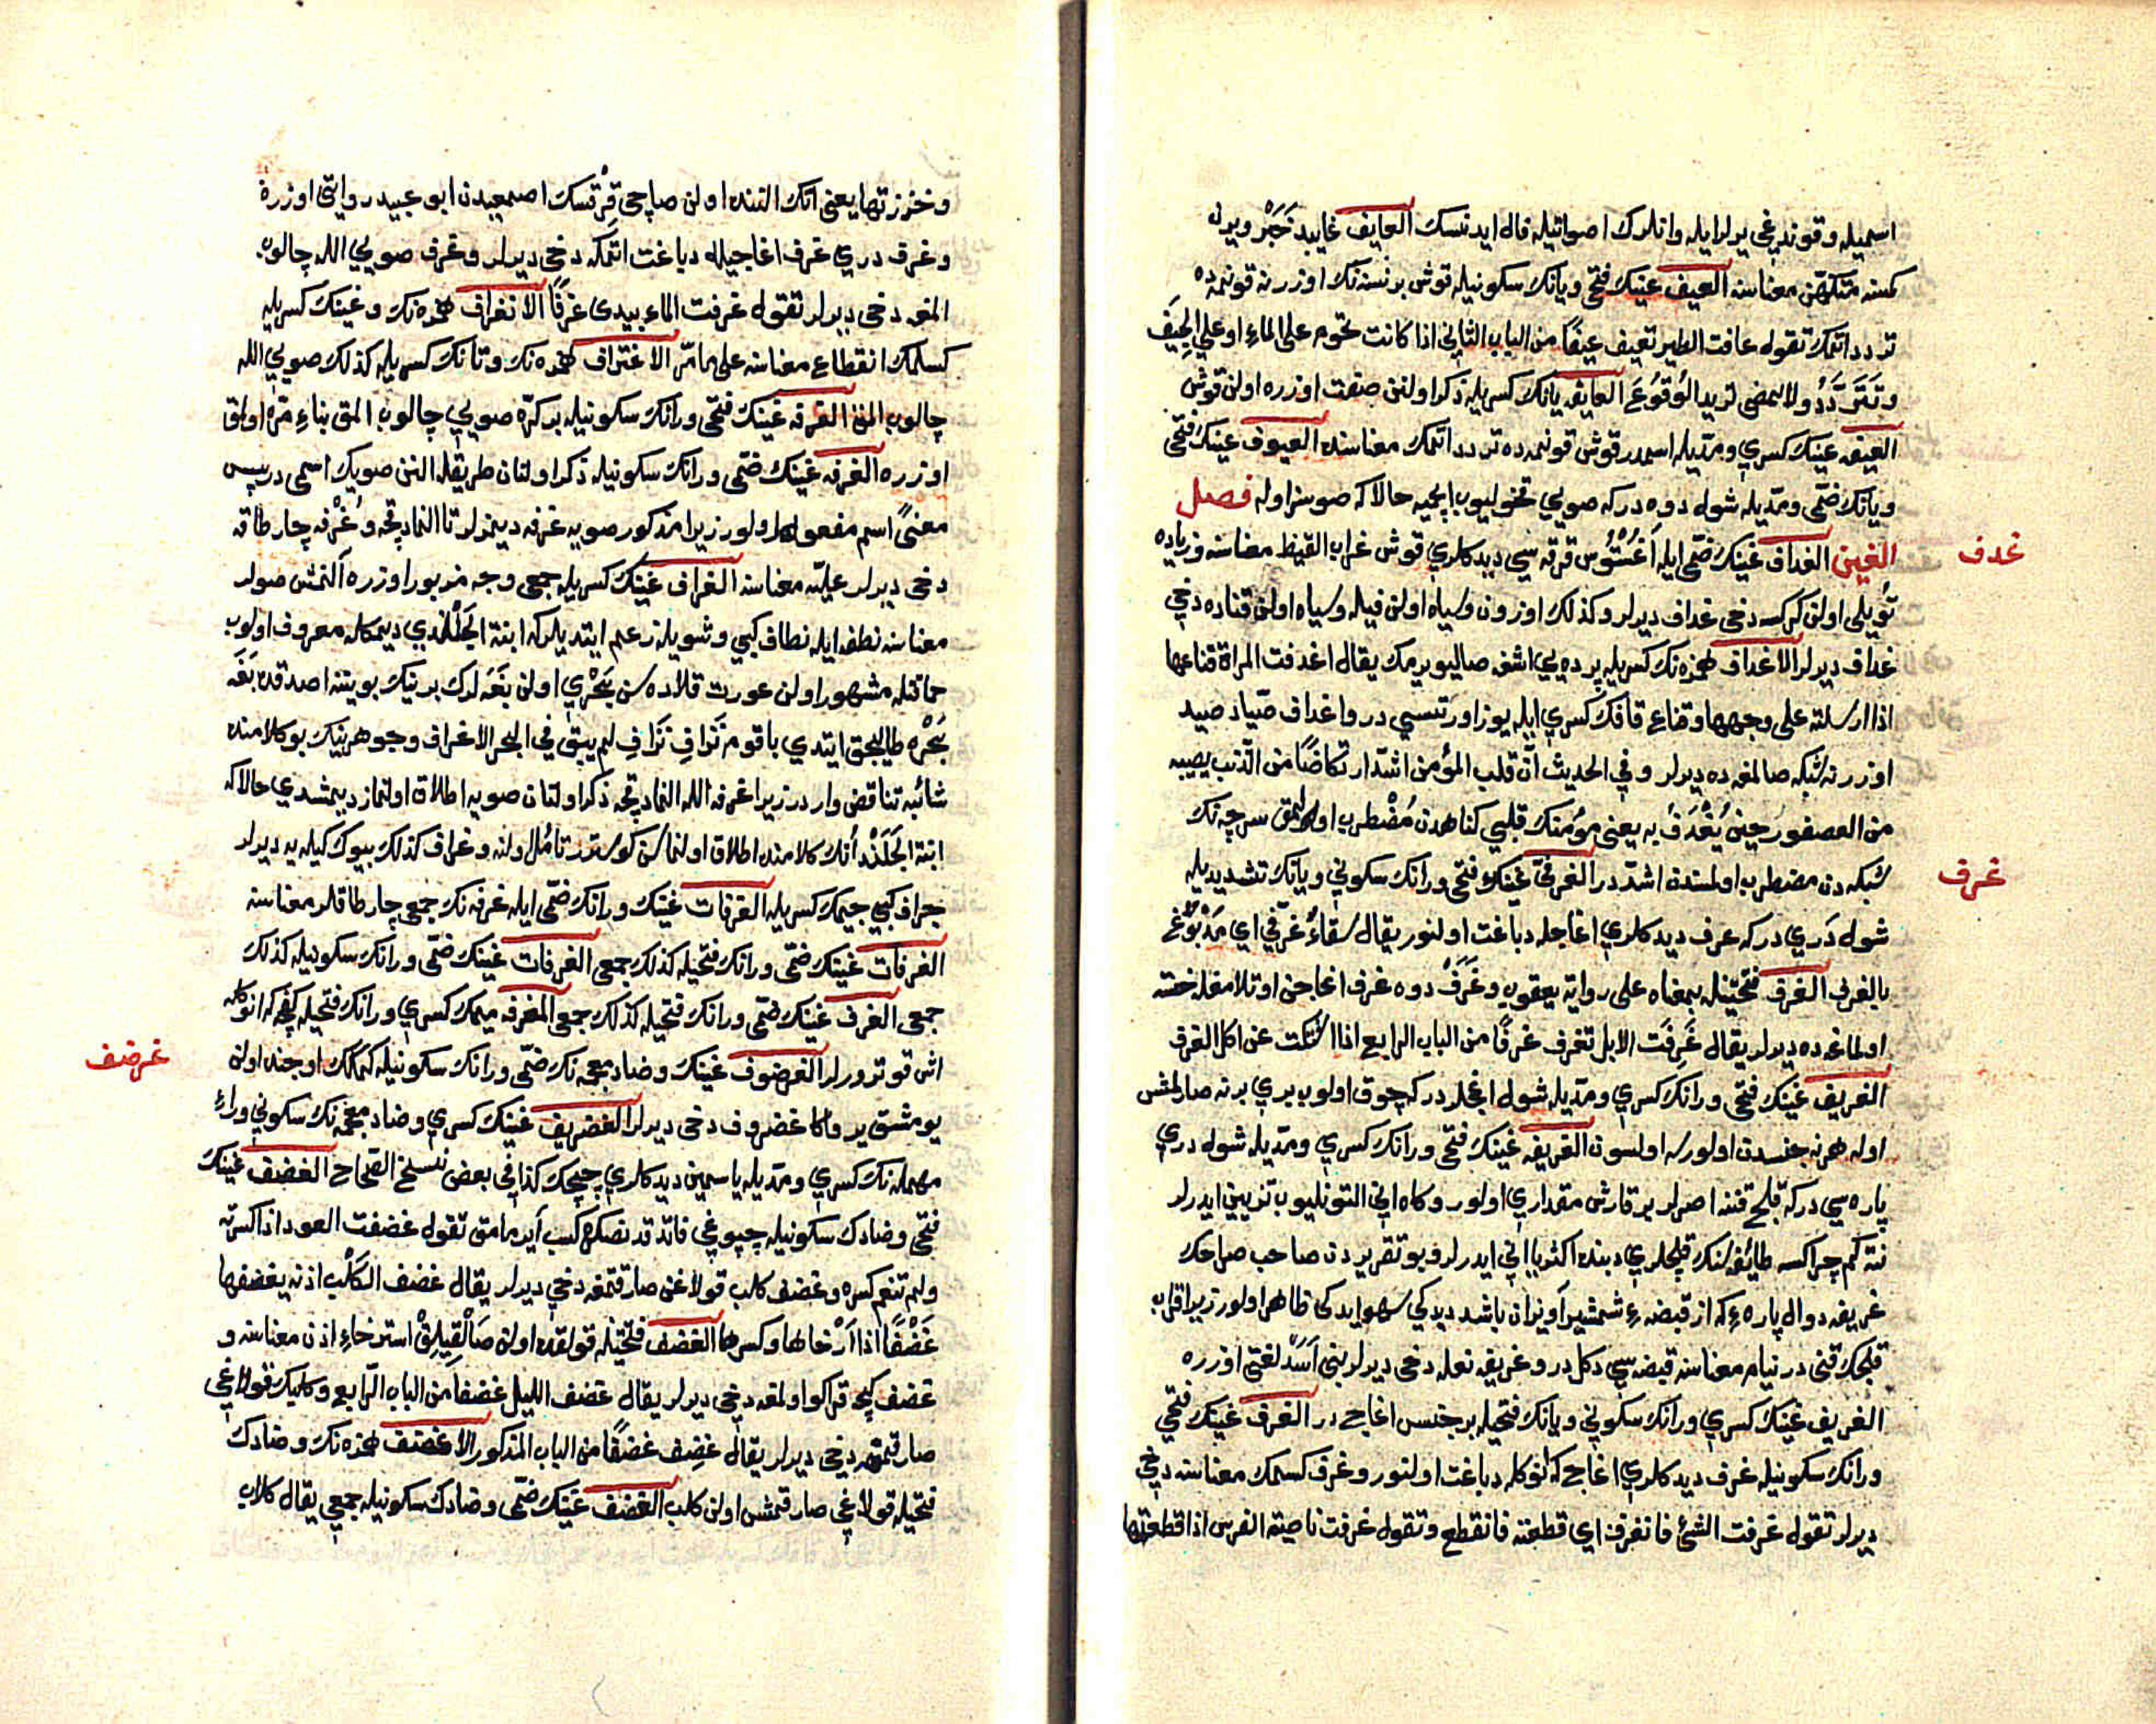 اسميله و قوندیغی یرلر ایله وانلرك اصواتیله فال ایدنسك العایف غایبدن خبر ویرل
كسنه متكهّن معناسنه العیف عینك فتحی و یانك سكونیله قوش بر نسنه نك اوزرنه قونمده
تردد اتمك تقول عافت الطیر تعیف عیفًا من الباب الثانی اذا كانت تحوم علی الماء او علی الجیف
وتتردّد ولا تمضی ترید الوقوع العایفه یانك كسریله ذكر اولنن صفت اوزره اولن قوش
العیفه عینك كسری و مدّیله اسمدر قوش قونمده تردد اتمك معناسنه العیوف عینك فتحی
و یانك ضمّی و مدّیله شول دوه در كه صویی قخولیوب ایچمیه حالا كه صوسز اوله فصل
الغین الغداف غینك ضمّی ایله اغستوس قرغه سی دیدكلری قوش غراب القیظ معناسنه و زیاده
غدف
تویلی اولن كركسه دخی غداف دیرلر و كذلك اوزون و سیاه اولن قیله و سیاه اولن قناده دخی
غداف دیرلر الاغداف همزه نك كسریله پرده یی اشغه صالیویرمك یقال اغدفت المراة قناعها
اذا ارسلته علی وجهها و قناع قافك كسری ایله یوز اورتسی در و اغداف صیّاد صید
اوزرنه شبكه صالمغه ده دیرلر و فی الحدیث انّ قلب المؤمن اشدّ ارتكاضًا من الذنب یصیبه
من العصفور حین یغدف به یعنی مؤمنك قلبی كناهدن مضطرب اولمق سرچه نك
شبكه دن مضطرب اولمسندن اشدّدر الغرفیّ غینك فتحی و رانك سكونی و یانك تشدیدیله
غرف
شول دری در كه غرف دیدكلری اغاجله دباغت اولنور یقال سقاء غرفیّ ای مدبوغ
بالغرف الغرف فتحتینله بمعناه علی روایة یعقوب و غرف دوه غرف اغاجن اوتلامغله خسته
اولماغه ده دیرلر یقال غرفت الابل تغرف غرفًا من الباب الرابع اذا اشتكت عن اكل الغرف
الغریف غینك فتحی و رانك كسری و مدّیله شول اغجلر در كه چوق اولوب بری برنه صارلمش
اوله هر نه جنسدن اولورسه اولسون الغریفه غینك فتحی و رانك كسری و مدّیله شول دری
پاره سی در كه قلج قننه اصرلر بر قارش مقداری اولور و كاه انی التونلیوب تزیین ایدرلر
نته كم چراكسه طائفه سنك قلجلری دبنده اكثریا انی ایدرلر و بو تقریردن صاحب صراحك
غریفه دوال پاره ء كه از قبضه ء شمشیر اویزان باشد دیدكی سهو ایدكی ظاهر اولور زیرا قراب
قلجك قنی در نیام معناسنه قبضه سی دكلدر و غریفه نعله دخی دیرلر بنی اسد لغتی اوزره
الغریف غینك كسری و رانك سكونی و یانك فتحیله بر جنس اغاج در الغرف غینك فتحی
و رانك سكونیله غرف دیدكلری اغاج كه انوكله دباغت اولنور و غرف كسمك معناسنه دخی
دیرلر تقول غرفت الشئ فانغرف ای قطعته فانقطع و تقول غرفت ناصیة الفرس اذا قطعتها
و خززتها یعنی انك النده اولن صاچی قرقسك اصمعیدن ابو عبید روایتی اوزره
و غرف دری غرف اغاجیله دباغت اتمكه دخی دیرلر و غرف صویی الله چالوب
المغه دخی دیرلر تقول غرفت الماء بیدی غرفًا الانغراف همزه نك و غینك كسریله
كسلمك انقطاع معناسنه علی ما مرّ الاغتراف همزه نك و تانك كسریله كذلك صویی الله
چالوب المق الغرفه غینك فتحی و رانك سكونیله بر كرّه صویی چالوب المق بناء مرّه اولمق
اوزره الغرفه غینك ضمّی و رانك سكونیله ذكر اولنان طریقله النن صویك اسمی در پس
معنیً اسم مفعول اولور زیرا مذكور صویه غرفه دینمز لر تا المادقجه و غرفه چارطاقه
دخی دیرلر علیّه معناسنه الغراف غینك كسریله جمعی وجه مزبور اوزره النمش صولر
معناسنه نطفه ایله نطاف كبی و شویله زعم ایتدیلر كه ابنة الجلندی دیمكله معروف اولوب
حماقتله مشهور اولن عورت قلاده سن بحری اولن بغه لرك برینك بویننه اصدقده بغه
بحره طالیجق ایتدی یا قوم نزاف نزاف لم یبق فی البحر الا غراف و جوهرینیك بو كلامنده
شائبه تناقض واردر زیرا غرفه الله المادقجه ذكر اولنان صویه اطلاق اولنماز دیمشدی حالا كه
ابنة الجلندانك كلامنده اطلاق اولنماسن كوسترر تامل اولنه و غراف كذلك بیوك كیله یه دیرلر
جراف كبی جیمك كسریله الغرفات غینك و رانك ضمّی ایله غرفه نك جمعی چارطاقلر معناسنه
الغرفات غینك ضمّی و رانك فتحیله كذلك جمعی الغرفات غینك ضمّی و رانك سكونیله كذلك
جمعی الغرف غینك ضمّی و رانك فتحیله كذلك جمعی المغرفه میمك كسری و رانك فتحیله كفچه كه انوكله
اش قوتررلر الغرضوف غینك و ضاد معجمه نك ضمّی و رانك سكونیله كمكك اوجنده اولن
غرضف
یومشق یر و اكا غضروف دخی دیرلر الغضریف غینك كسری و ضاد معجمه نك سكونی و راء
مهمله نك كسری و مدّیله یاسمین دیدكلری چیچك كذا فی بعض نسخ الصحاح الغضف غینك
فتحی و ضادك سكونیله چپوغی قاتد قدنصكره كسب آیرمامق تقول غضفت العود اذا كسرته
و لم تنعم كسره و غضف كلب قولاغن صارقتمغه دخی دیرلر یقال غضف الكلب اذنه یغضفها
غضفًا اذا ارخاها و كسرها الغضف فتحتینله قولقده اولن صالقیلق استرخاء اذن معناسنه و
غضف كیجه قراكو اولمغه دخی دیرلر یقال غضف اللیل غضفًا من الباب الرابع و كلبك قولاغی
صارقمغه دخی دیرلر یقال غضف غضفًا من الباب المذكور الاغضف همزه نك و ضادك
فتحیله قولاغی صارقمش اولن كلب الغضف غینك ضمّی و ضادك سكونیله جمعی یقال كلاب